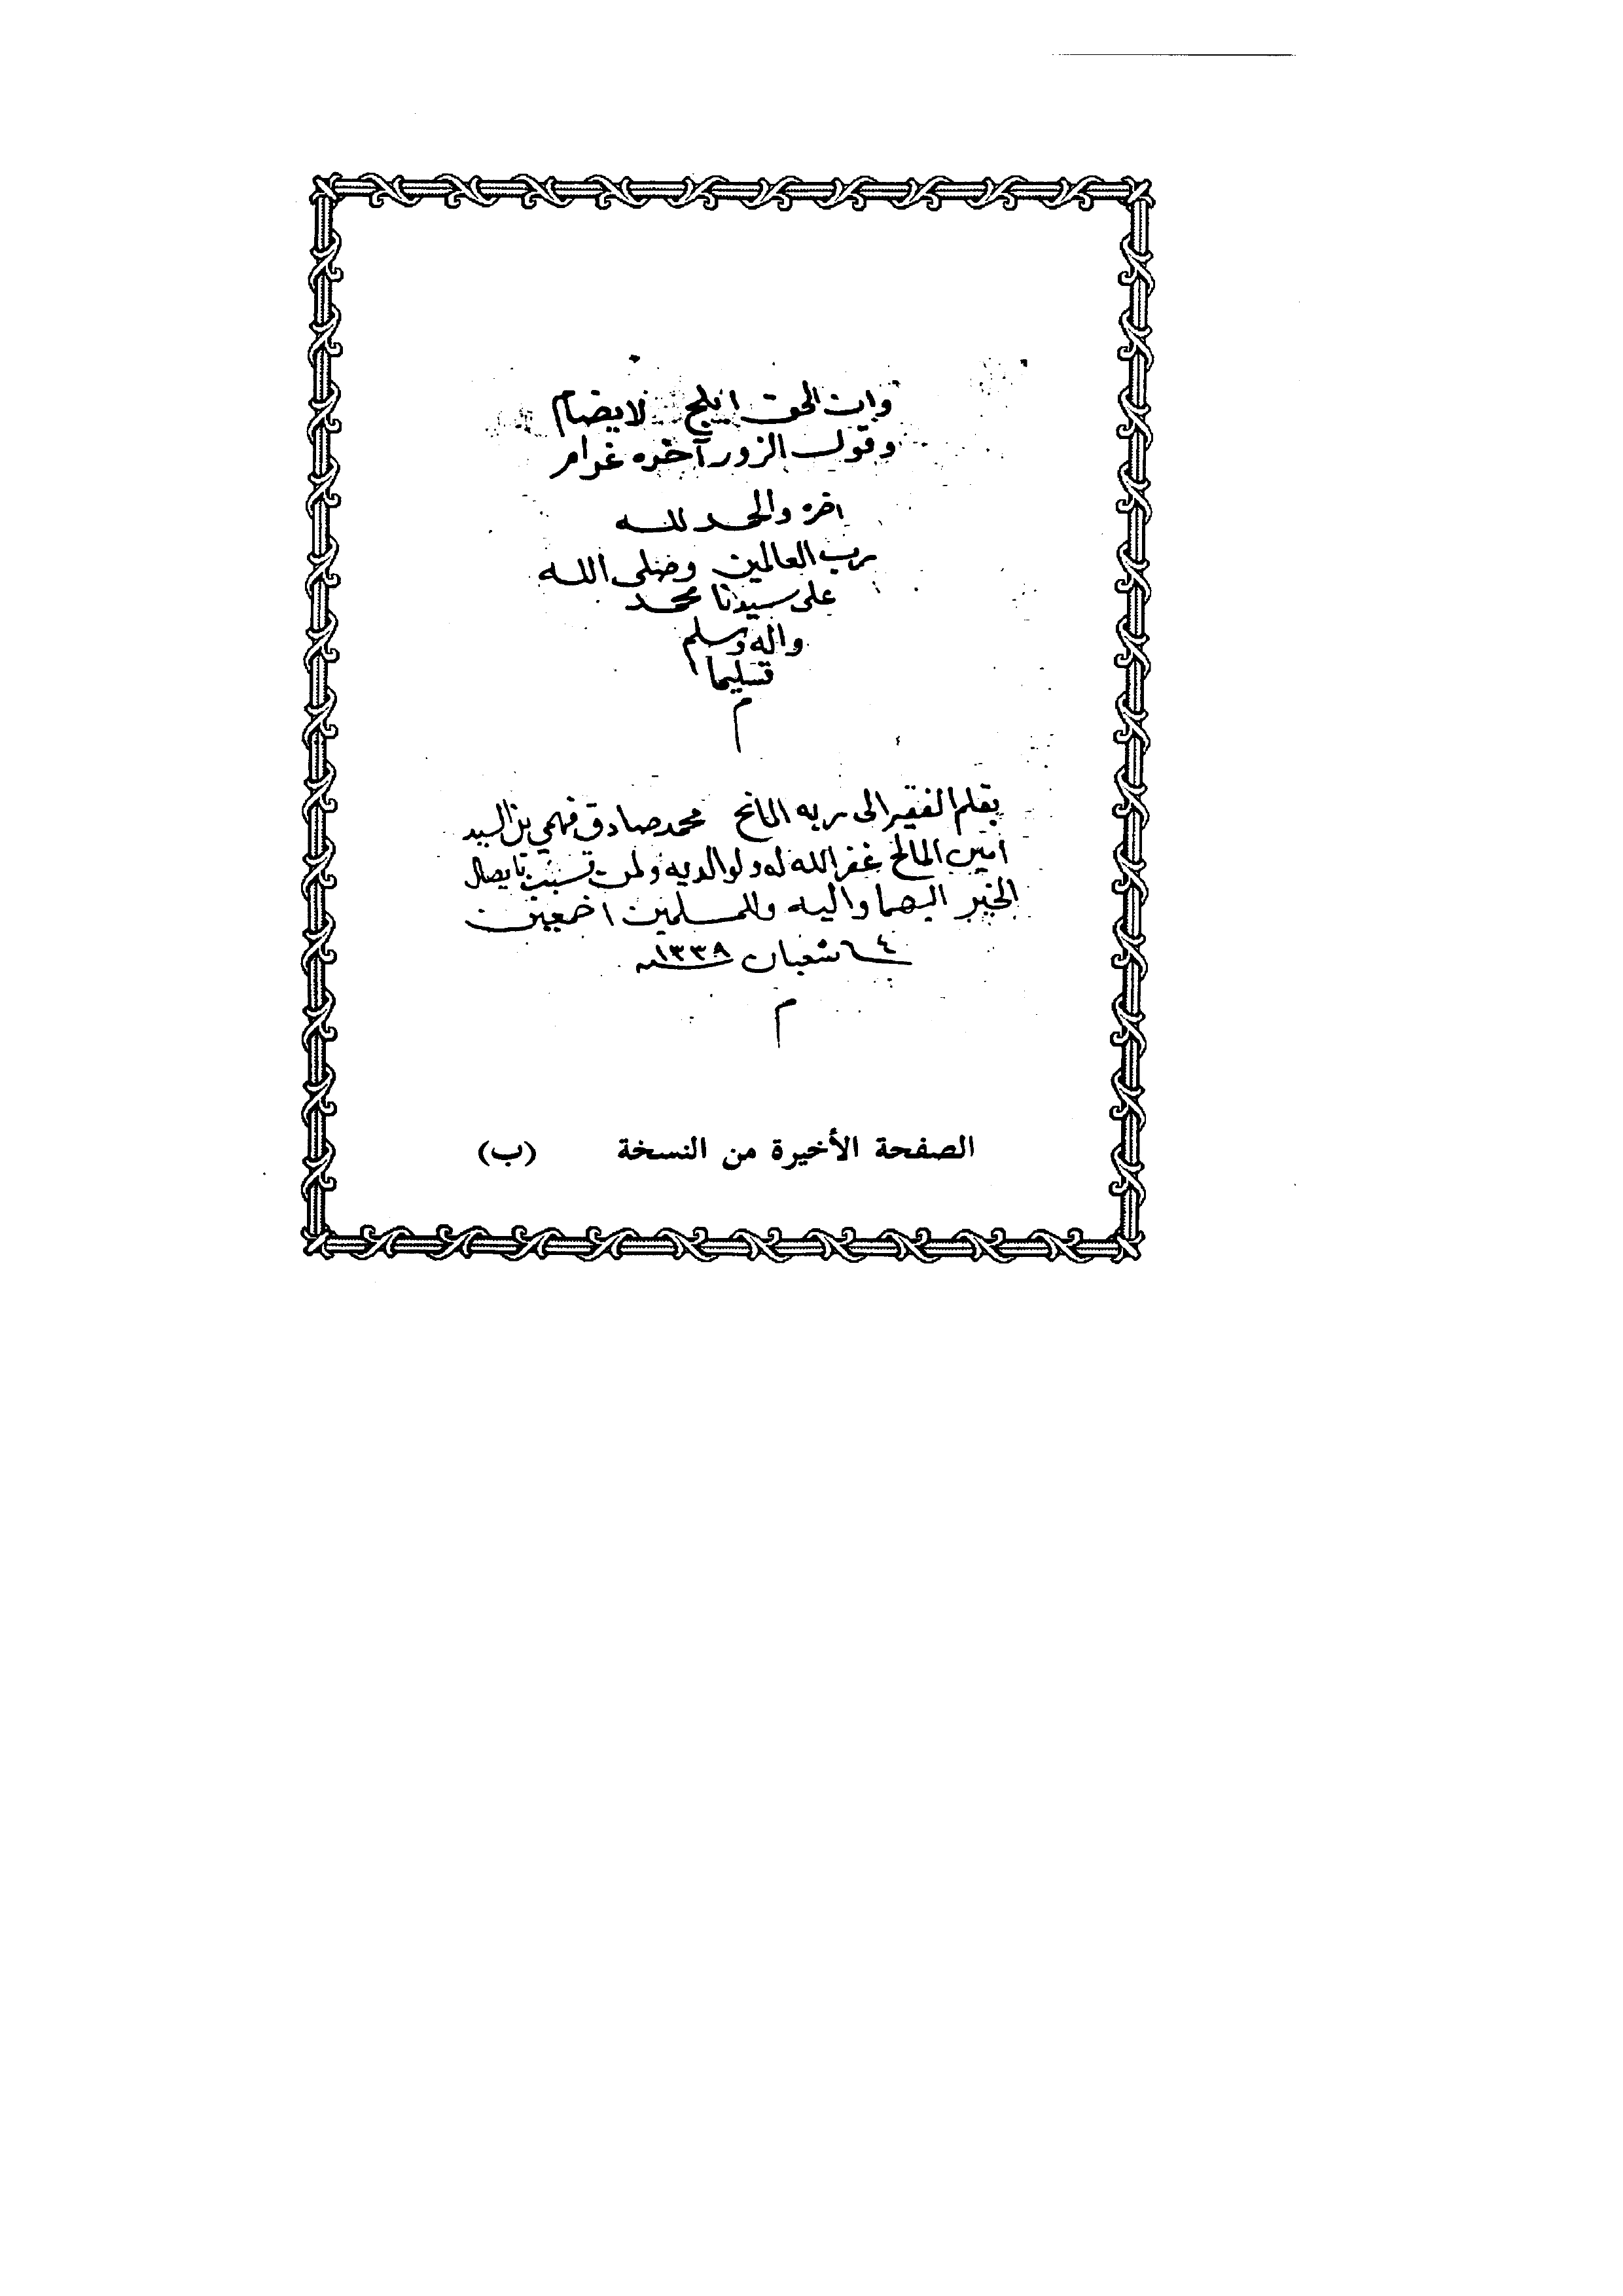 وان الحق ابلج لا يضام
وقول الزور آخره غرام
اخره والحمد لله
رب العالمين وصلى الله
على سيدنا محمد
واله وسلم
تسليما
م
بقلم الفقير الى ربه المانح محمد صادق فهمي بن السيد
امين المالح غفر الله له ولوالديه ولمن تسبب بايصال
الخير اليهما واليه وللمسلمين اجمعين
٤ شعبان ١٣٣٨
م
الصفحة الأخيرة من النسخة (ب)